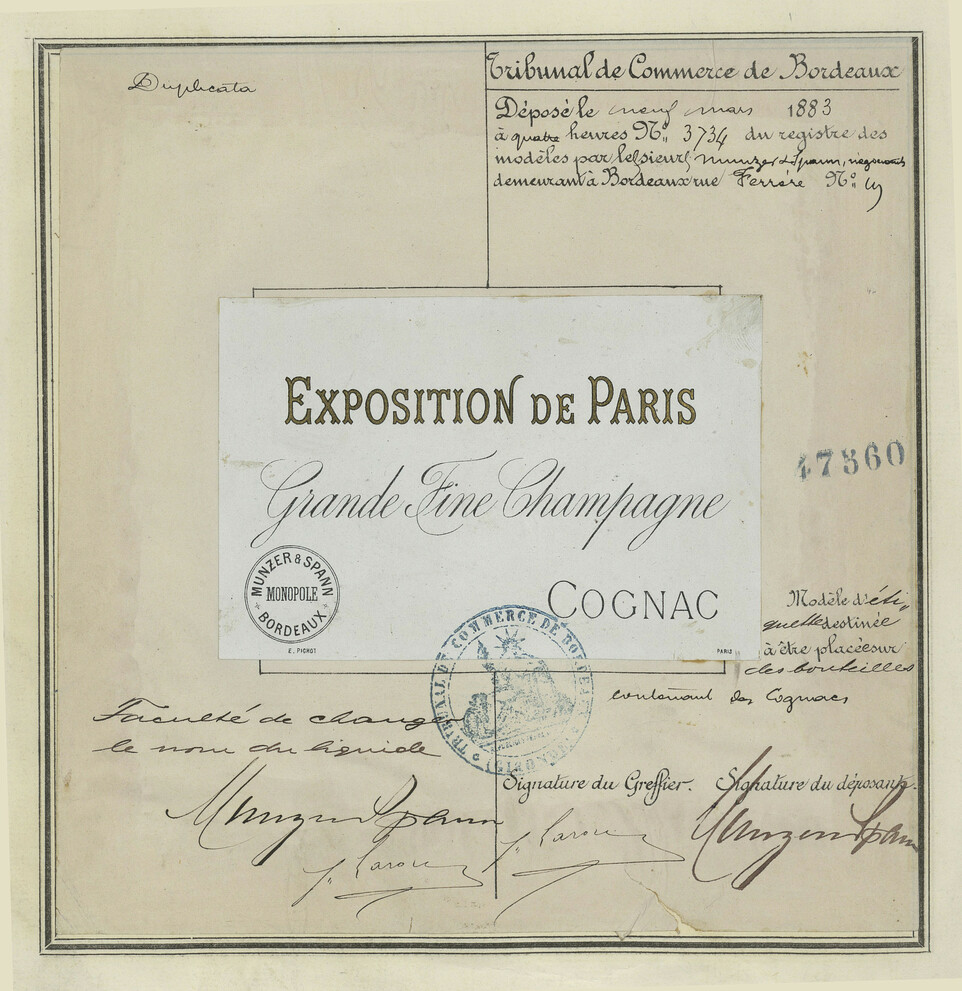 Duplicata
Tribunal de Commerce de Bordeaux
Déposé le neuf mars 1883
à quatre heures Nº 3734 du registre des
modèles par les sieurs Munzer & Spann, négociants
demeurant à Bordeaux rue Ferrére Nº
EXPOSITION DE PARIS
Grande Fine Champagne
COGNAC
MUNZER & SPANN
MONOPOLE
BORDEAUX
E. PICHOT
PARIS
47560
Modèle d'éti
quette destinée
à être placée sur
des bouteilles
contenant des Cognacs
TRIBUNAL DE COMMERCE DE BORDEAUX
(GIRONDE)
Faculté de changer
le nom du liquide
Signature du Greffier. Signature du déposant.
Munzer & Spann
Munzer & Spann